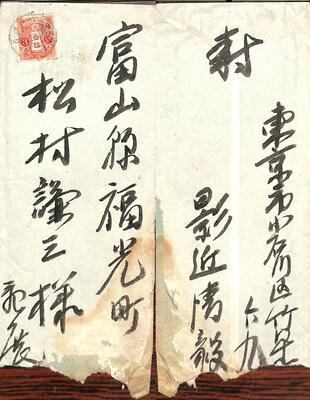 富山縣福光町
松村謙三様
親展
封
東京市小石川区竹早
六九
影近清毅